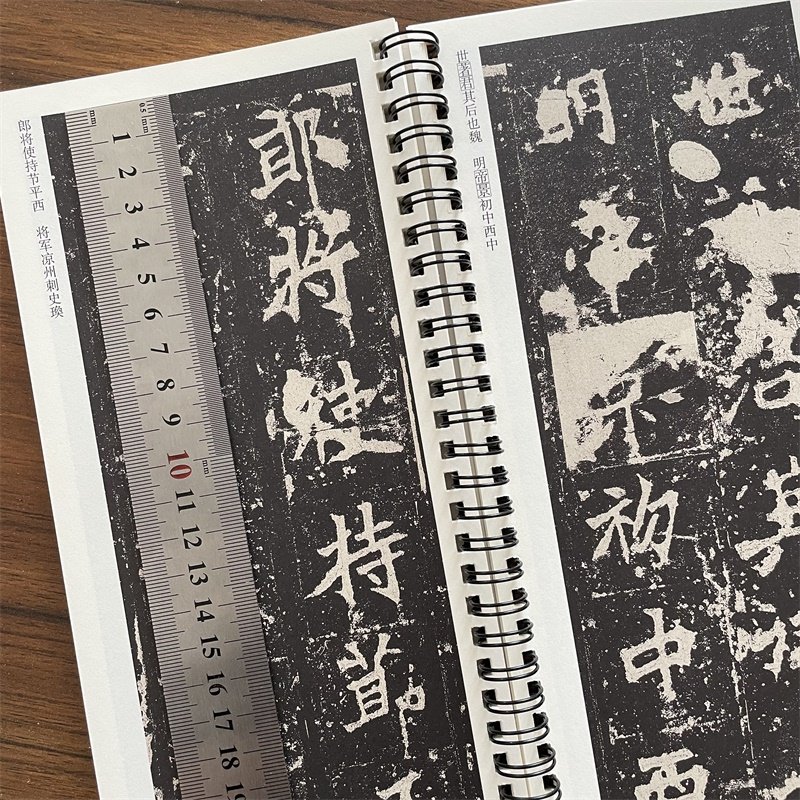 世著君其后也魏 明帝景初中西中
世
其
明帝
初中西
郎将使持节平西 将军凉州刺史瑍
郎將使持節
mm 0.5 mm
1 2 3 4 5 6 7 8 9 10 11 12 13 14 15 16 17 18 19
mm